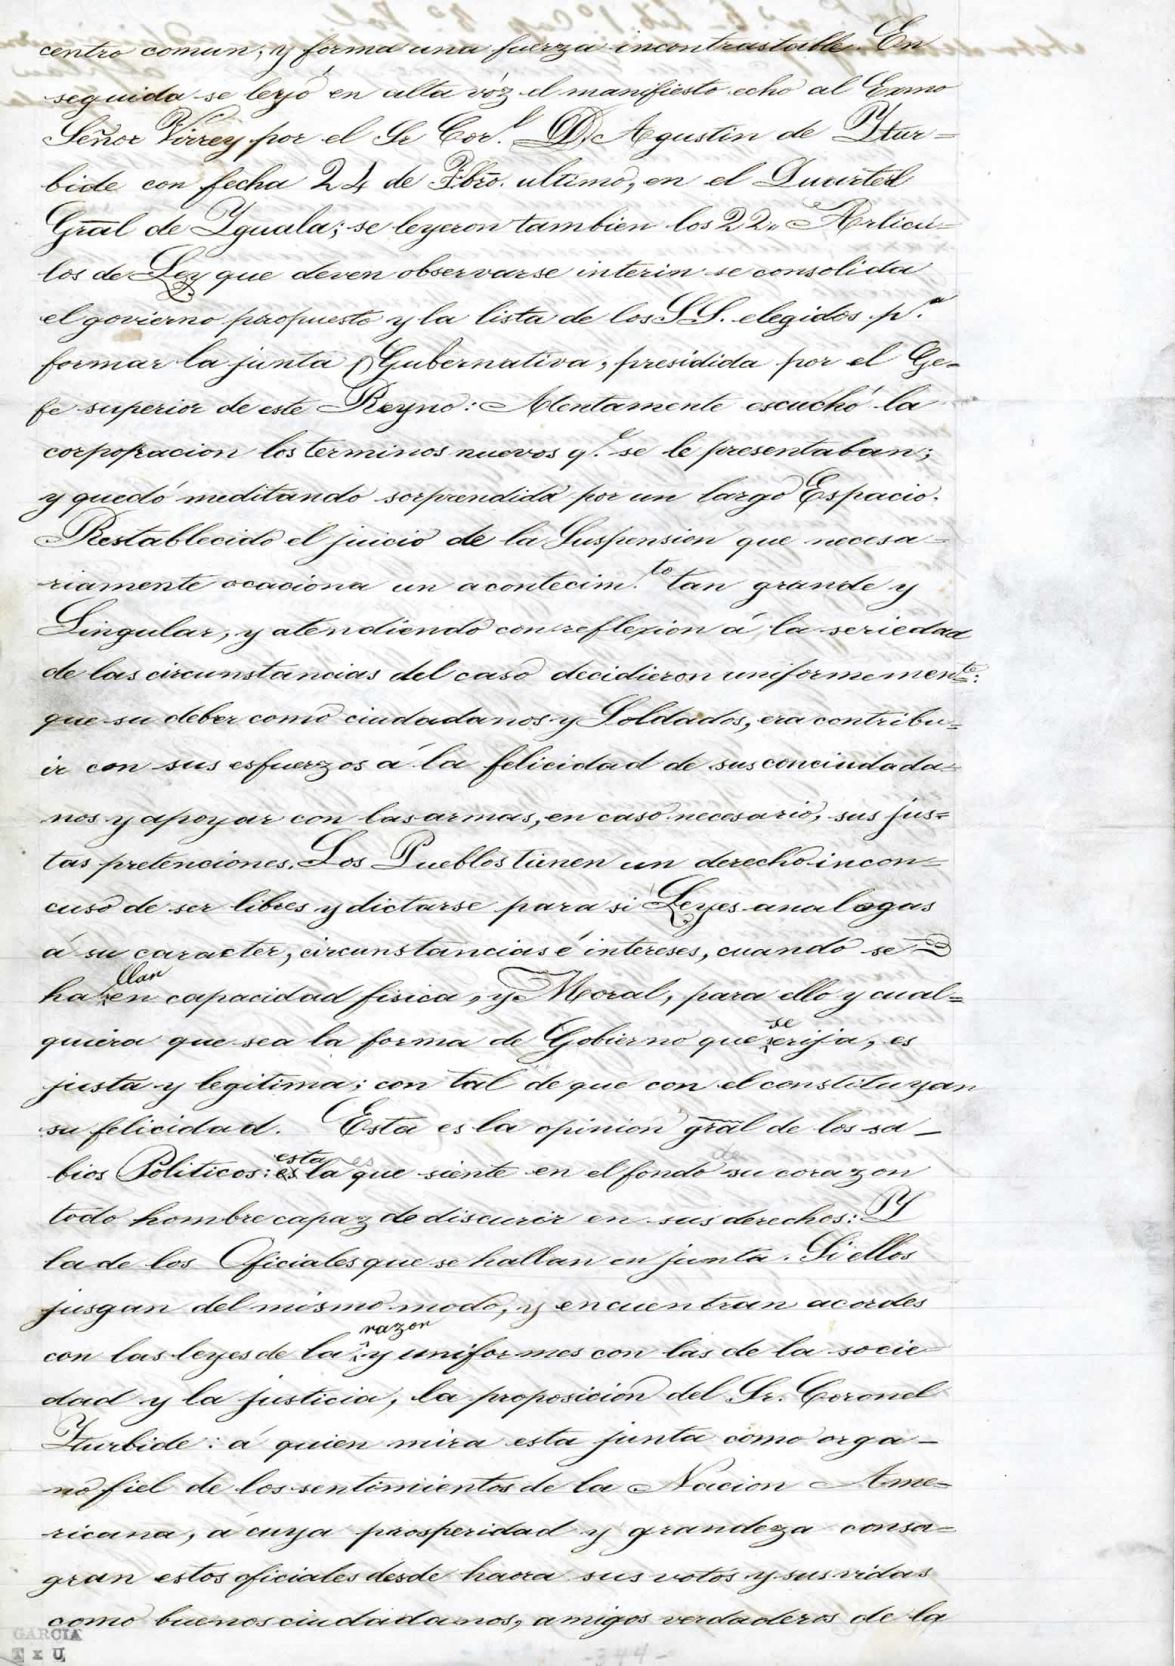 centro comun; y forma una fuerza incontrastable. En
seguida se leyó en alta vóz el manifiesto echo al Exmo
Señor Virrey por el Sr Cor.l D. Agustin de Ytur=
bide con fecha 24 de Fbro. ultimo, en el Quartel
Gral de Yguala; se leyeron tambien los 22,, Articu=
los de Ley que deven observarse interin se consolida
el govierno propuesto y la lista de los SS. elegidos p.a
formar la junta Gubernativa, presidida por el Ge=
fe superior de este Reyno: Atentamente escuchó la
corporacion los terminos nuevos q.e se le presentaban;
y quedó meditando sorprendida por un largo Espacio.
Restablecido el juicio de la Suspension que necesa=
riamente ocaciona un acontecim.to tan grande y
Singular, y atendiendo con reflexion á la seriedad
de las circunstancias del caso decidieron uniformemen.te:
que su deber como ciudadanos y Soldados, era contribu=
ir con sus esfuerzos á la felicidad de sus conciudada=
nos y apoyar con las armas, en caso necesario, sus jus=
tas pretenciones. Los Pueblos tienen un derecho incon=
cuso de ser libres y dictarse para si Leyes analogas
á su caracter, circunstancias é intereses, cuando se
llan
haen capacidad fisica, y Moral, para ello y cual=
quiera que sea la forma de Gobierno que se erija, es
justa y legitima; con tal de que con el constituyan
su felicidad. Esta es la opinion gral de los sa_
bios Politicos: esta es la que siente en el fondo de su corazon
todo hombre capaz de discurir en sus derechos: Y
la de los Oficiales que se hallan en junta. Si ellos
jusgan del mismo modo, y encuentran acordes
razon
con las leyes de la y uniformes con las de la socie=
dad y la justicia, la proposicion del Sr. Coronel
Yturbide: á quien mira esta junta como orga_
no fiel de los sentimientos de la Nacion Ame=
ricana, á cuya prosperidad y grandeza consa=
gran estos oficiales desde haora sus votos y sus vidas
como buenos ciudadanos, amigos verdaderos de la
GARCIA
TxU
-344-